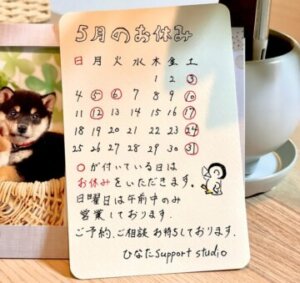 5月のお休み
日 月 火 水 木 金 土
1 2 3
4 5 6 7 8 9 10
11 12 13 14 15 16 17
18 19 20 21 22 23 24
25 26 27 28 29 30 31
○が付いている日は
お休みをいただきます。
日曜日は午前中のみ
営業しております。
ご予約、ご相談 お待ちしております。
ひなたSupport studio